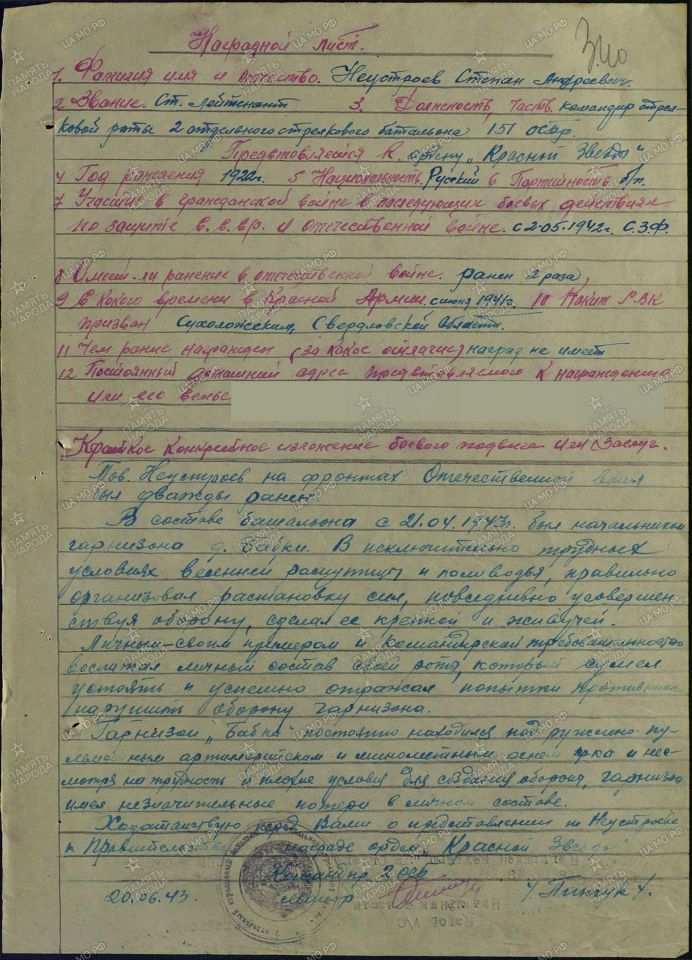 Наградной лист.
1. Фамилия имя и отчество. Неустроев Степан Андреевич.
2 Звание. Ст. Лейтенант 3. Должность, часть. командир стрел-
ковой роты 2 отдельного стрелкового батальона 151 осбр.
Представляется к ордену „Красной Звезды"
4 Год рождения 1922г. 5 Национальность. Русский 6 Партийность. б/п.
7 Участие в гражданской войне в последующих боевых действиях
по защите С.С.С.Р. и отечественной войне. с 2-05-1942г. С.З.Ф.
8 Имеет ли ранение в отечественной войне. ранен 2 раза
9 с какого времени в Красной Армии. с июня 1941г. 10 Каким Р.ВК
призван Сухоложским, Свердловской Области.
11 Чем ранее награжден (за какое отличие) наград не имеет
12 Постоянный домашний адрес представляемого к награждению
или его семьи
Краткое конкретное изложение боевого подвига или заслуг.
Тов. Неустроев на фронтах Отечественной войны
был дважды ранен
В составе батальона с 21.04.1943г. был начальником
гарнизона д. Бабки. В исключительно трудных
условиях весенней распутицы и половодья, правильно
организовал расстановку сил, повседневно усовершен
ствуя оборону, сделал ее крепкой и живучей.
Личным своим примером и командирской требовательностью
воспитал личный состав своей роты, который сумел
устоять и успешно отражал попытки противника
нарушить оборону гарнизона.
Гарнизон „Бабки" постоянно находился под ружейно пу-
леметным артиллерийским и минометным огнем пр-ка и нес-
мотря на трудность и плохие условия для создания обороны, гарнизон
имел незначительные потери в личном составе.
Ходатайствую перед Вами о представлении т. Неустроева
к Правительственной награде орден „Красной Звезды"
Командир 2 осб
20.06.43. майор /Пинчук/.